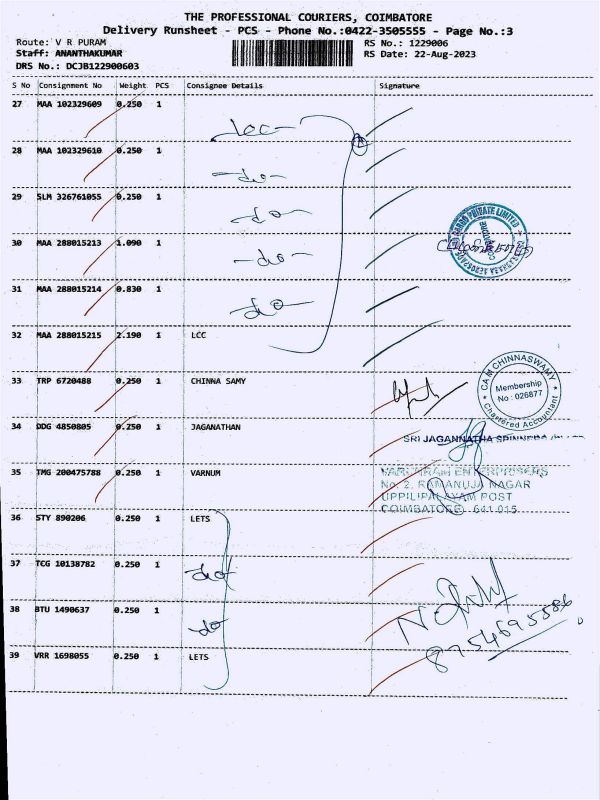 THE PROFESSIONAL COURIERS, COIMBATORE
Delivery Runsheet - PCS - Phone No.:0422-3505555 - Page No.:3
Route: V R PURAM
RS No.: 1229006
Staff: ANANTHAKUMAR
RS Date: 22-Aug-2023
DRS No.: DCJB122900603
S No Consignment No Weight PCS Consignee Details Signature
27 MAA 102329609 0.250 1 LCC
28 MAA 102329610 0.250 1 -do-
29 SLM 326761055 0.250 1 -do-
30 MAA 288015213 1.090 1 -do-
31 MAA 288015214 0.830 1 -do-
32 MAA 288015215 2.190 1 LCC
33 TRP 6720488 0.250 1 CHINNA SAMY
CA M CHINNASWAMY
Membership
No : 026877
Chartered Accountant
34 DDG 4850805 0.250 1 JAGANATHAN
SRI JAGANNATHA
35 TMG 200475788 0.250 1 VARNUM
No. 2, RAMANUJA NAGAR
UPPILIPALAYAM POST
COIMBATORE 641 015
36 STY 890206 0.250 1 LETS
37 TCG 10138782 0.250 1 -do-
38 BTU 1490637 0.250 1 do
39 VRR 1698055 0.250 1 LETS